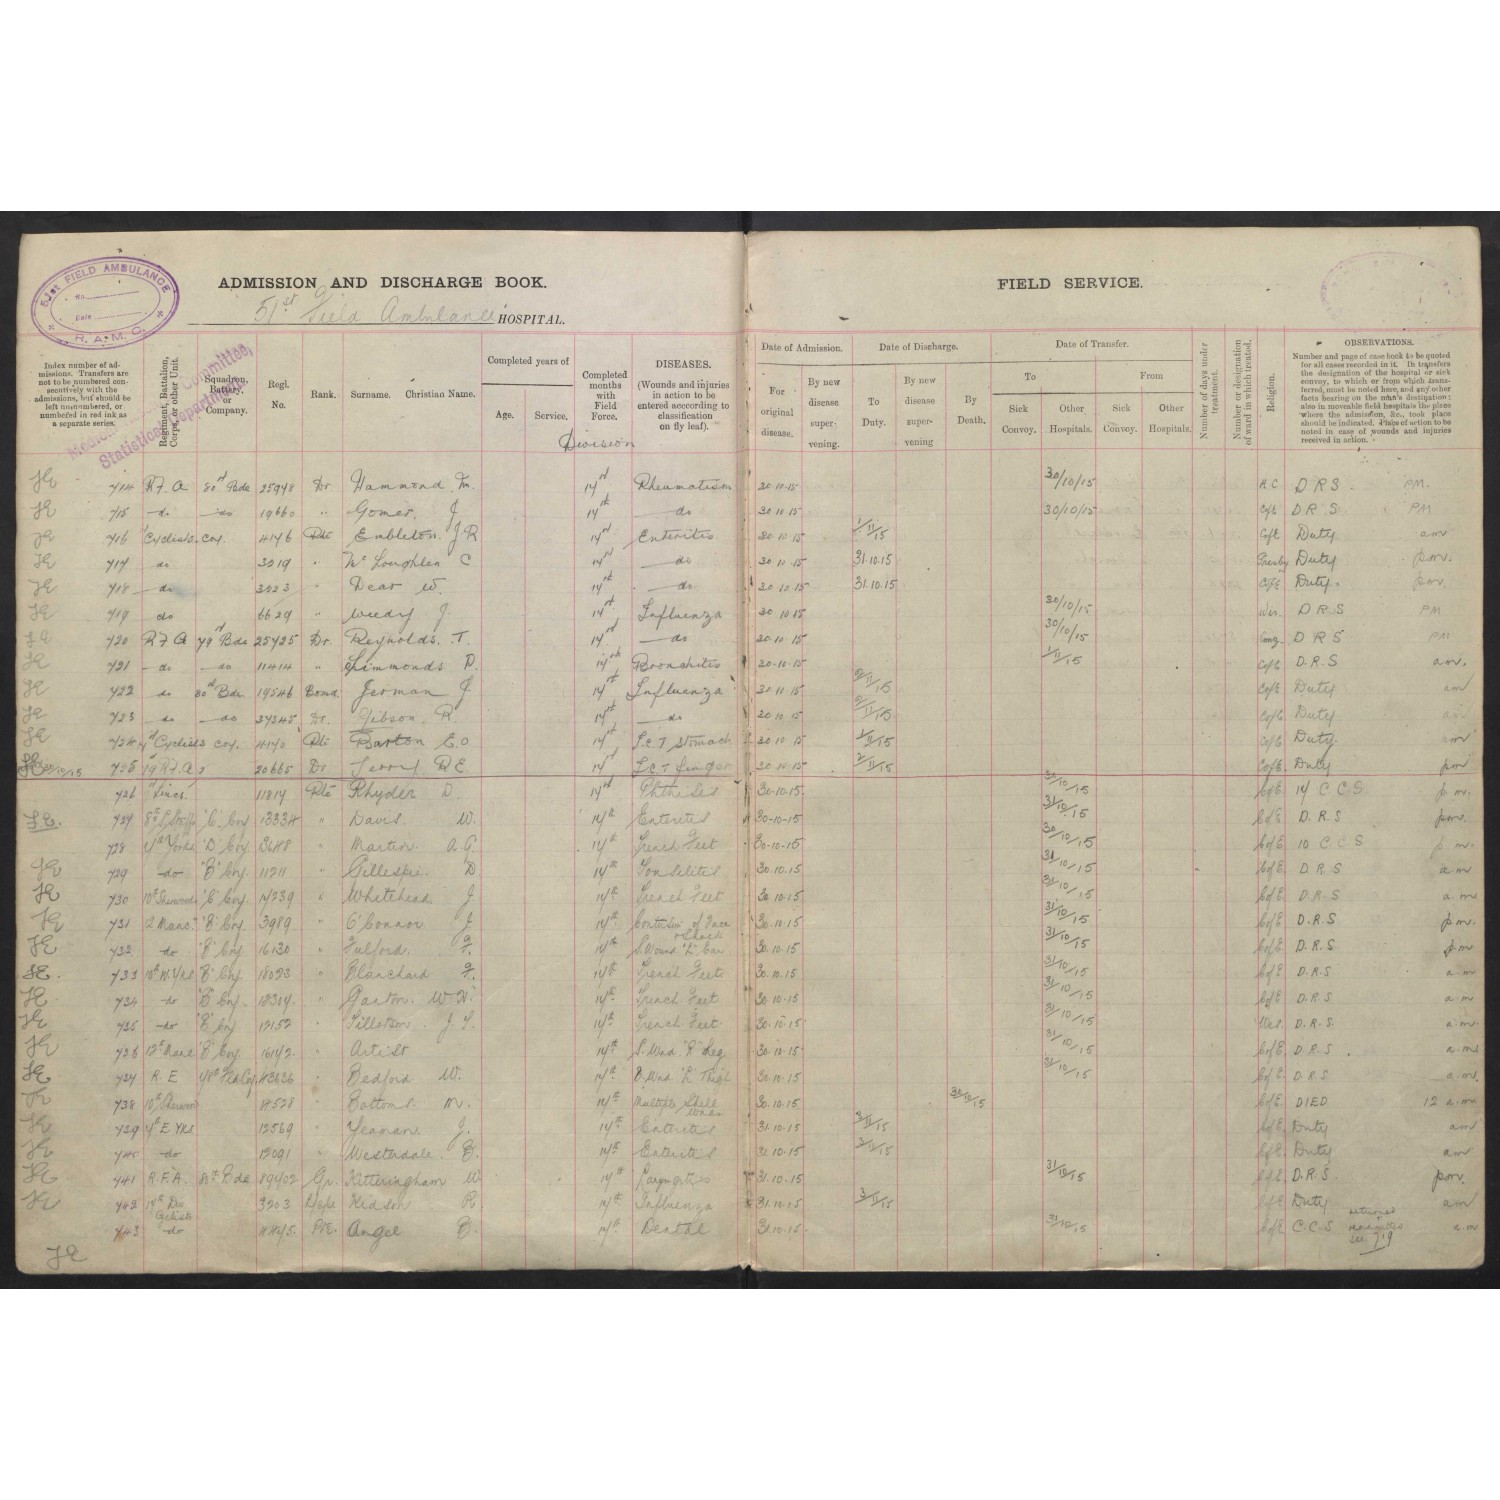 51st FIELD AMBULANCE
No.
Date
R.A.M.C.
ADMISSION AND DISCHARGE BOOK.
51st Field Ambulance HOSPITAL.
FIELD SERVICE.
Committee,
Statistical Department
Index number of admissions. Transfers are not to be numbered consecutively with admissions, but should be left unnumbered, or numbered in red ink as a separate series.
Regiment, Battalion, Corps, or other Unit.
Squadron, Battery, or Company.
Regl. No.
Rank.
Surname. Christian Name.
Completed years of
Age.
Service.
Completed months with Field Force.
Division
DISEASES.
(Wounds and injuries in action to be entered acccording to classification on fly leaf).
Date of Admission.
For original disease.
By new disease supervening.
Date of Discharge.
To Duty.
By new disease supervening
By Death.
Date of Transfer.
To
Sick Convoy.
Other Hospitals.
From
Sick Convoy.
Other Hospitals.
Number of days under treatment.
Number or designation of ward in which treated.
Religion.
OBSERVATIONS.
Number and page of case book to be quoted for all cases recorded in it. In transfers the designation of the hospital or sick convoy, to which or from which transferred, must be noted here, and any other facts bearing on the man's destination: also in moveable field hospitals the place where the admission, &c., took place should be indicated. Place of action to be noted in case of wounds and injuries received in action.
714 R F A 80th Bde 25948 Dr Hammond 14 Rheumatism 30-10-15 30/10/15 R.C D R S. PM.
715 do do 19660 " Gomer J 14th do 30 10 15 30/10/15 D R S PM
716 Cyclists coy. 4146 Pte Embleton J R 14 Enteritis 30 10 15 1/11/15 Duty am
717 do 3219 " Mc Loughlen C 14 do 30 10 15 31.10.15 Presby Duty pm.
718 do " Dear W. 14 do 30 10 15 31.10.15 Duty. pm.
719 do 6629 " J. 14 Influenza 30 10 15 30/10/15 D R S PM
720 R F A 79 Bde 25725 Dr. Reynolds. T. 14 do 30-10-15 30/10/15 D R S PM
721 do do 11414 " Simmonds D. 14 Bronchitis 30-10-15 1/11/15 D.R.S am.
722 do 80 Bde 19546 Bomd. Jerman J 14 Influenza 30 10 15 2/11/15 Duty am
723 do do 37345 Dr. Gibson. R. 14 do 30 10 15 2/11/15 Duty
724 Cyclists coy. Pte Barton E.O 14 I.C.T Stomach 30 10 15 1/11/15 Duty. am
725 R.F.A 20665 Dr Terry R E. 14 I.C.T finger 30 10 15 2/11/15 Duty pm
726 Lincs. 11817 Pte Rhyder D. 14 Phthisis 30-10-15. 31/10/15 C of E 14 C C S p.m.
727 "C" Coy 13334 " Davis. W. 14th Enteritis 30-10-15 31/10/15 C of E D.R.S pm.
728 Yorks "D" Coy " Martin A.G. 14th Trench Feet 30-10-15 30/10/15 C of E 10 C C S p.m.
729 do "B" Coy. 11211 " Gillespie. D. 14th Tonsilitis 30.10.15 31/10/15 C of E D.R.S a m
730 10th Sherwood "C" Coy. " Whitehead J 14th Trench Feet 30.10.15 31/10/15 C of E D.R.S a.m
731 12 Manc. "B" Coy. 3989 " O'Connor J 14th Contusion of Face & Shock 30.10.15 31/10/15 C of E D.R.S pm.
732 do "B" Coy 16130 " Fulford. 14th S.Wound "L" Ear 30.10.15 31/10/15 C of E D.R.S pm
733 10th W. Yks "B" Coy. 18023 " Blanchard 14th Trench Feet 30.10.15 31/10/15 C of E D.R.S a.m
734 do "B" Coy. 18314. " Gaxton. W.H. 14th Trench Feet 30.10.15 31/10/15 C of E D.R.S a m
735 do "B" Coy 12152 " Tillotson. J. 14th Trench Feet 30.10.15 31/10/15 Wes. D.R.S. a.m
736 12th Manc "B" Coy. " Artist 14th S. Wnd. "R" Leg 30.10.15 31/10/15 C of E D.R.S. a.m.
737 R. E " Bedford W. 14th Wnd. "L" Thigh 30.10.15 31/10/15 C of E D.R.S a.m.
738 10th Sherwood " Bottoms M. 14th Multiple Shell Wnds 30.10.15 30/10/15 C of E. DIED 12 a.m
739 7th E Yks 12569 " Yeaman. J. 14th Enteritis 31.10.15 3/11/15 C of E. Duty am
740 do 12091 " Westerdale. 14th Enteritis 31.10.15 Duty am
741 R.F.A. Bde 89402 Gr. Kitteringham W 14th Laryngitis 31.10.15 31/10/15 D.R.S. pm.
742 Div Cyclists 3203 Kidson R 14th Influenza 31.10.15 3/11/15 Duty am
743 do Pte. Angel 14th Dental 31.10.15 31/10/15 C of E C.C.S returned see 719 a.m